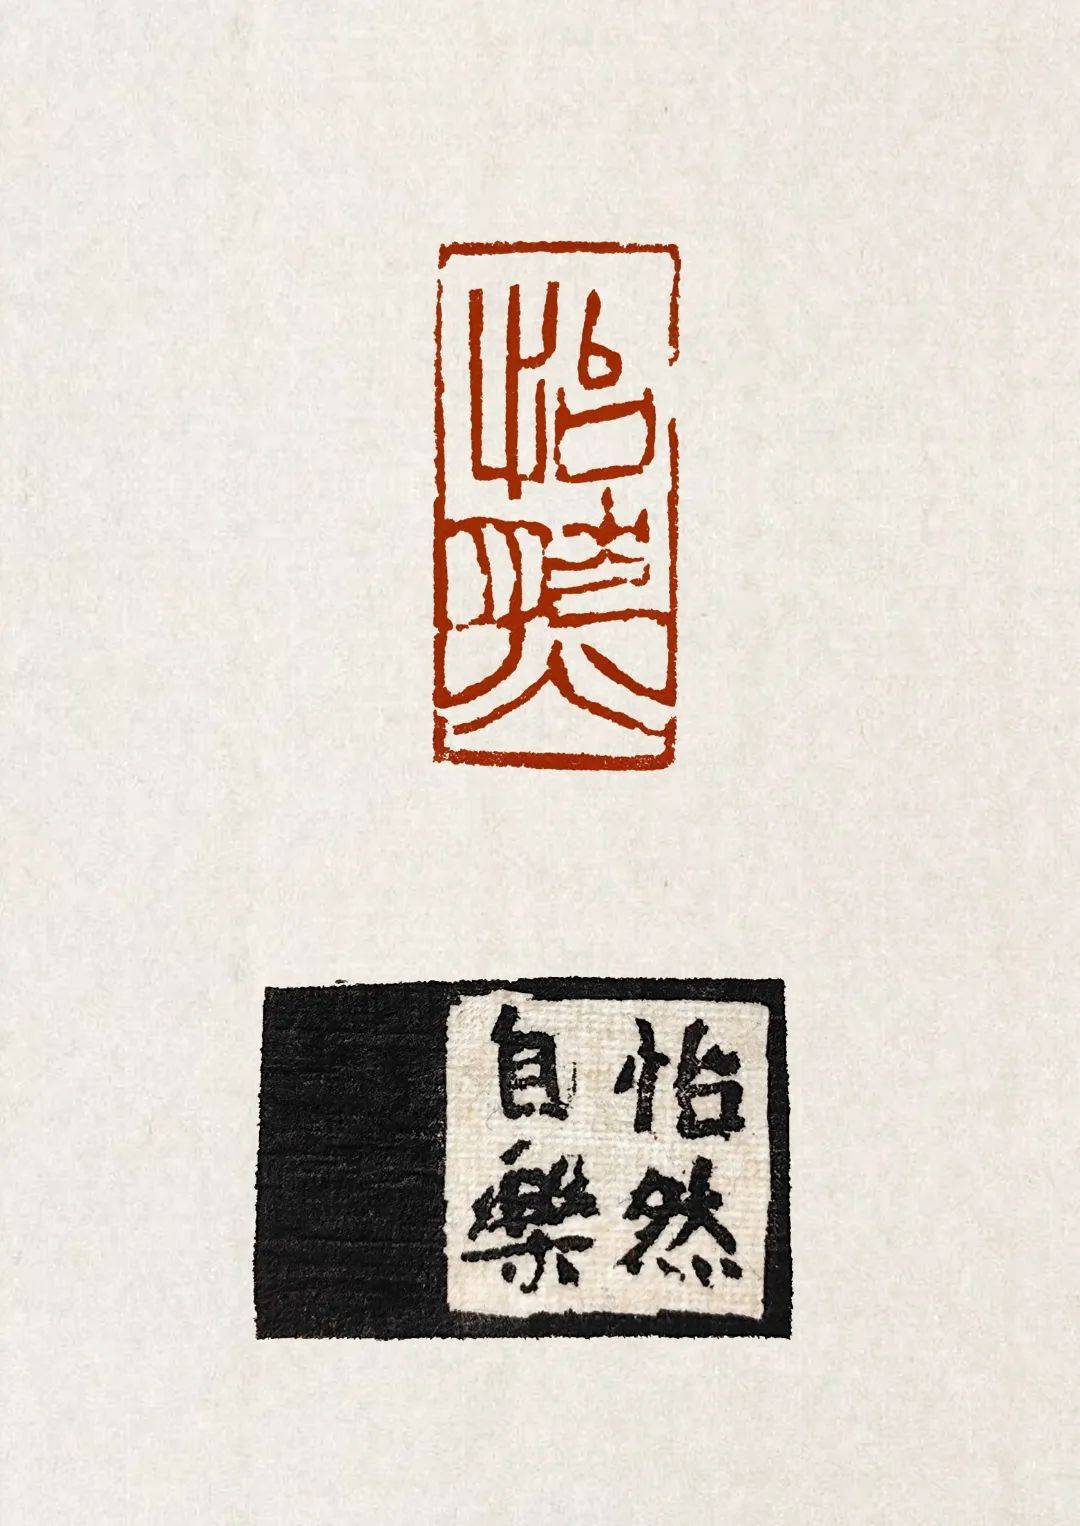 怡然
怡然
自樂